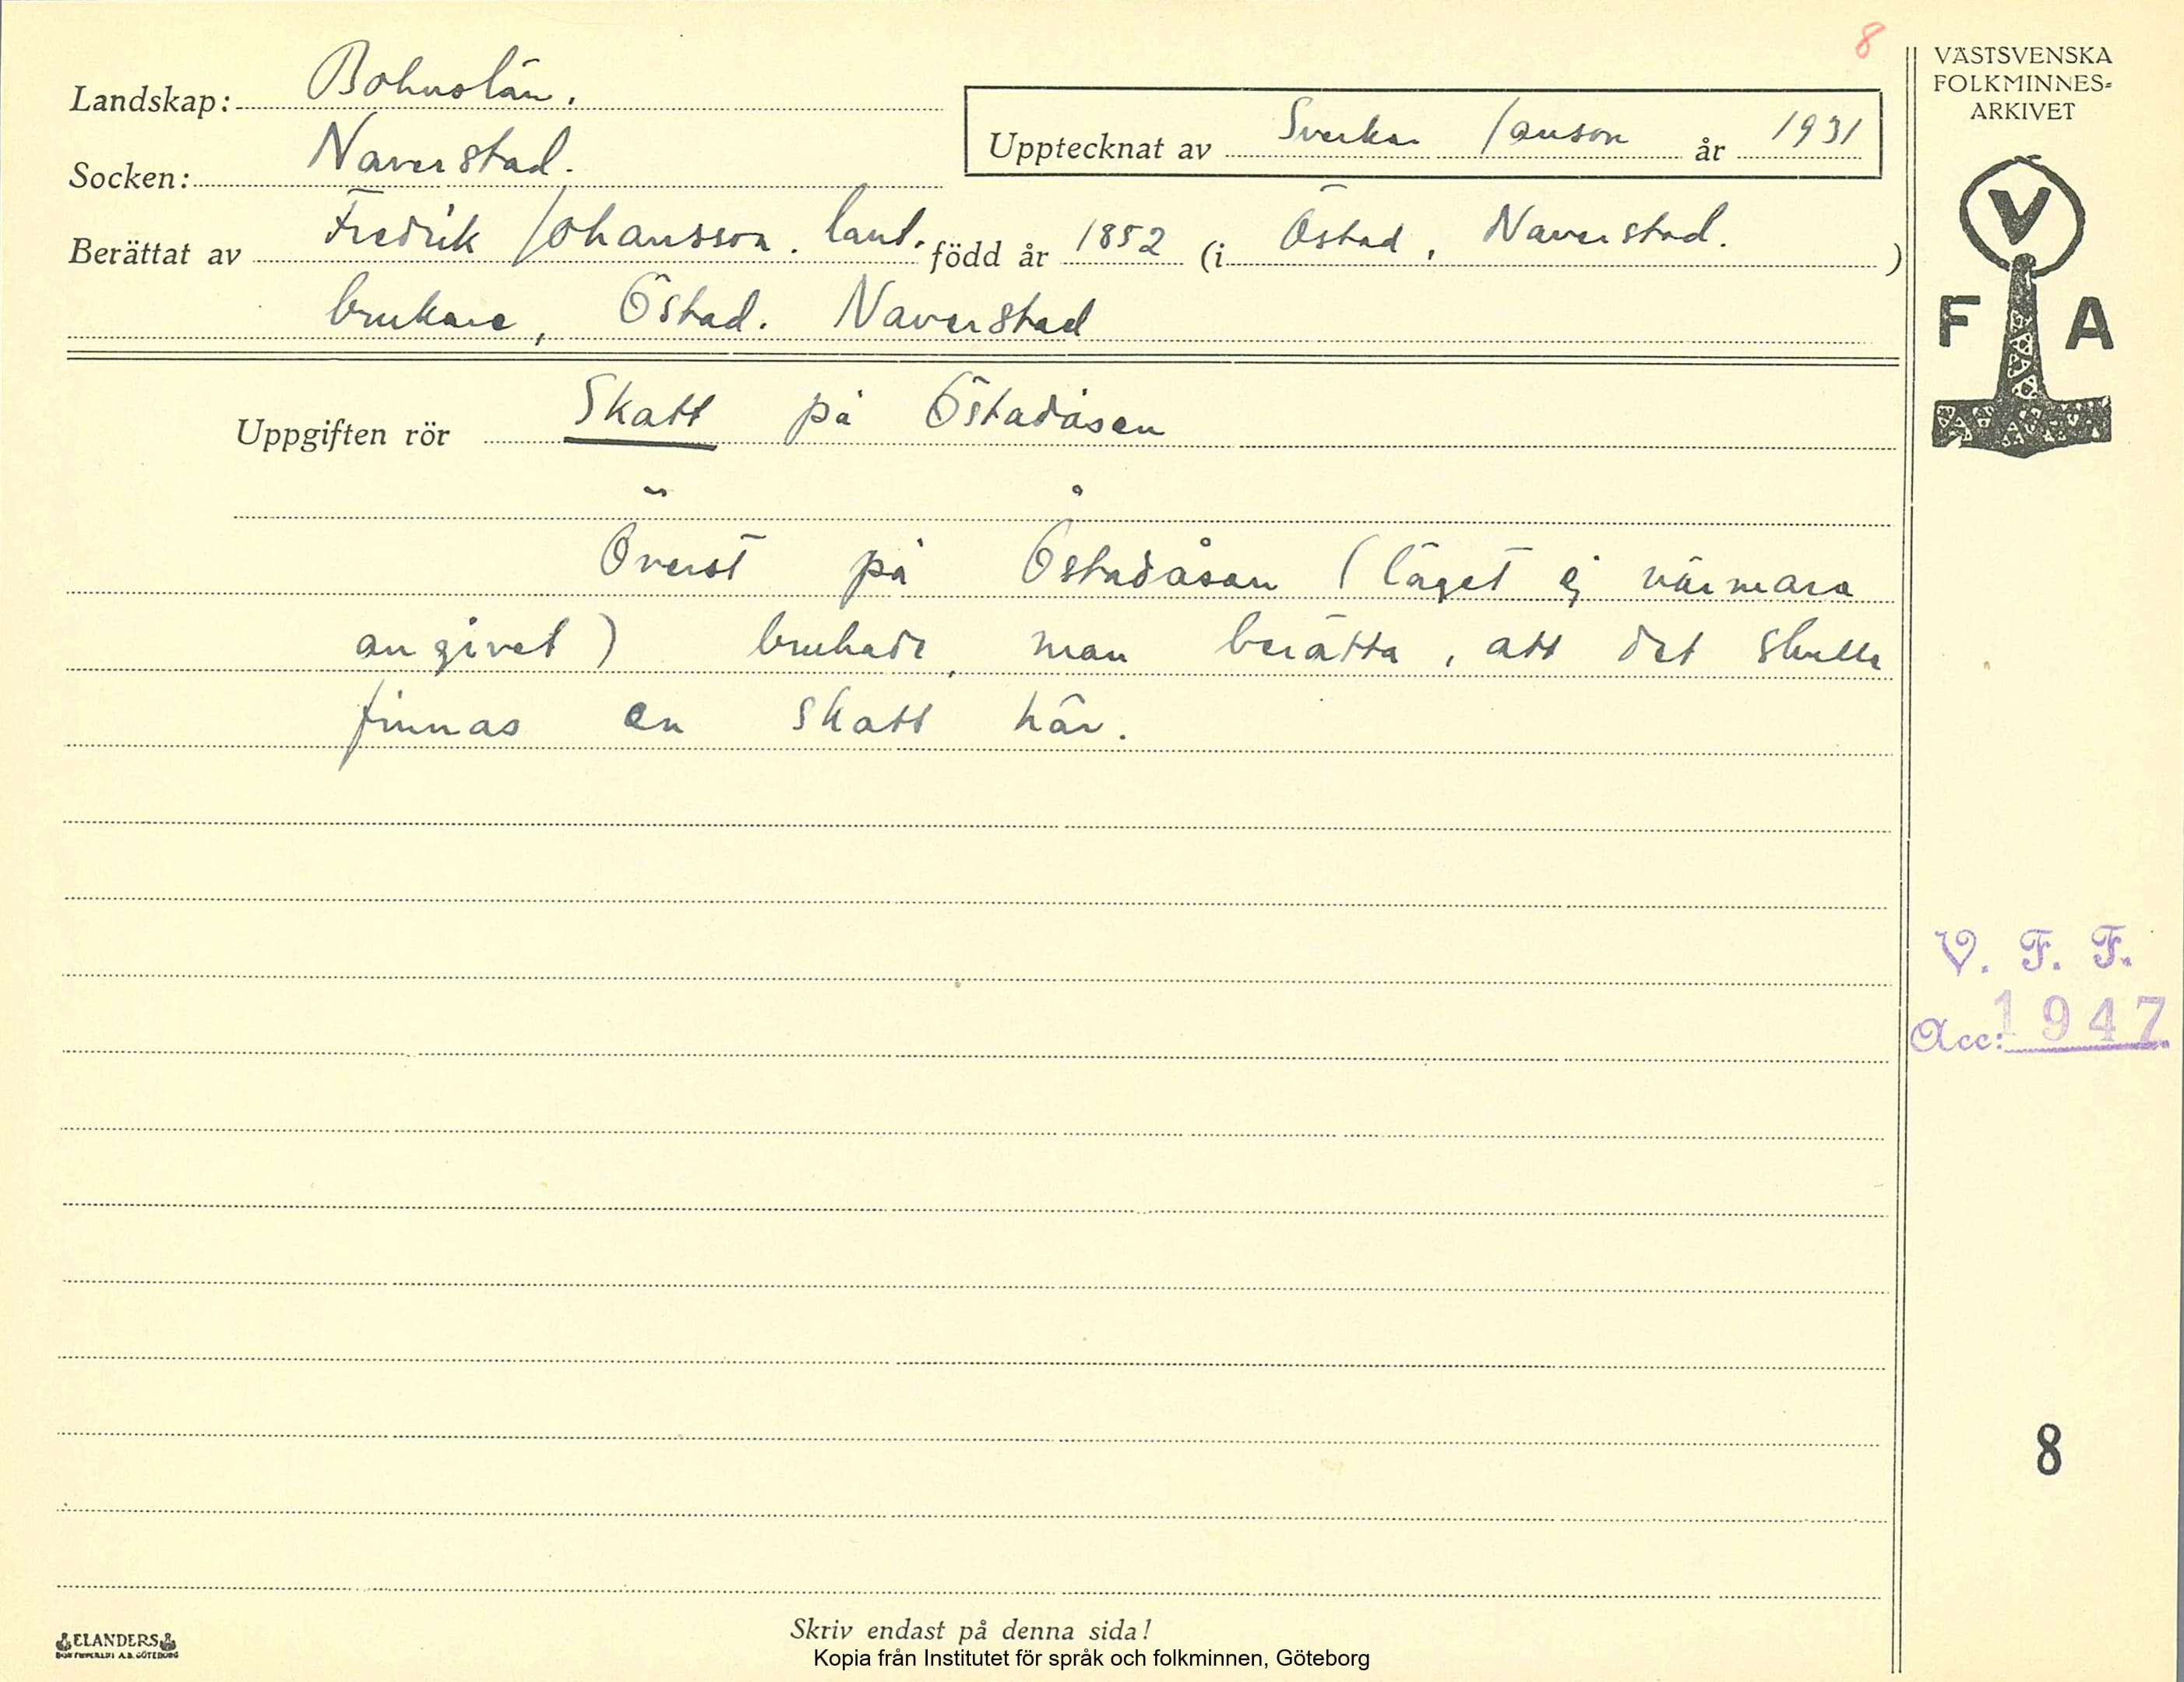 8
VÄSTSVENSKA
FOLKMINNES-
ARKIVET
Landskap: Bohuslän.
Upptecknat av Sverker Janson år 1931
Socken: Naverstad.
Berättat av Fredrik Johansson. lant. född år 1852 (i Östad, Naverstad.)
brukare, Östad. Naverstad
V
F A
Uppgiften rör Skatt på Östadåsen
Överst på Östadåsen (läget ej närmare
angivet) brukade man berätta, att det skulle
finnas en skatt här.
V. F. F.
Acc: 1947.
8
Skriv endast på denna sida!
ELANDERS
Kopia från Institutet för språk och folkminnen, Göteborg